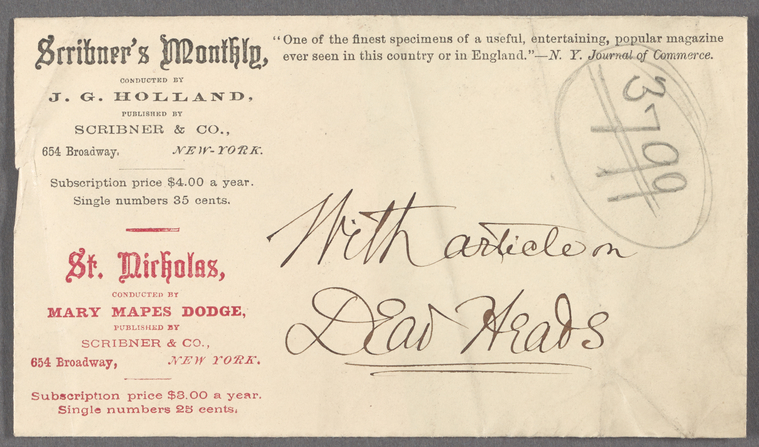 Scribner's Monthly,
CONDUCTED BY
J. G. HOLLAND,
PUBLISHED BY
SCRIBNER & CO.,
654 Broadway, NEW-YORK.
Subscription price $4.00 a year.
Single numbers 35 cents.
St. Nicholas,
CONDUCTED BY
MARY MAPES DODGE,
PUBLISHED BY
SCRIBNER & CO.,
654 Broadway, NEW YORK.
Subscription price $3.00 a year.
Single numbers 25 cents.
"One of the finest specimens of a useful, entertaining, popular magazine
ever seen in this country or in England."—N. Y. Journal of Commerce.
3709
With article on
DEad HEads